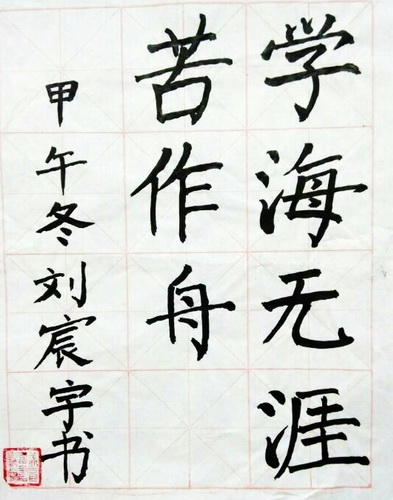 学海无涯
苦作舟
甲午冬刘宸宇书